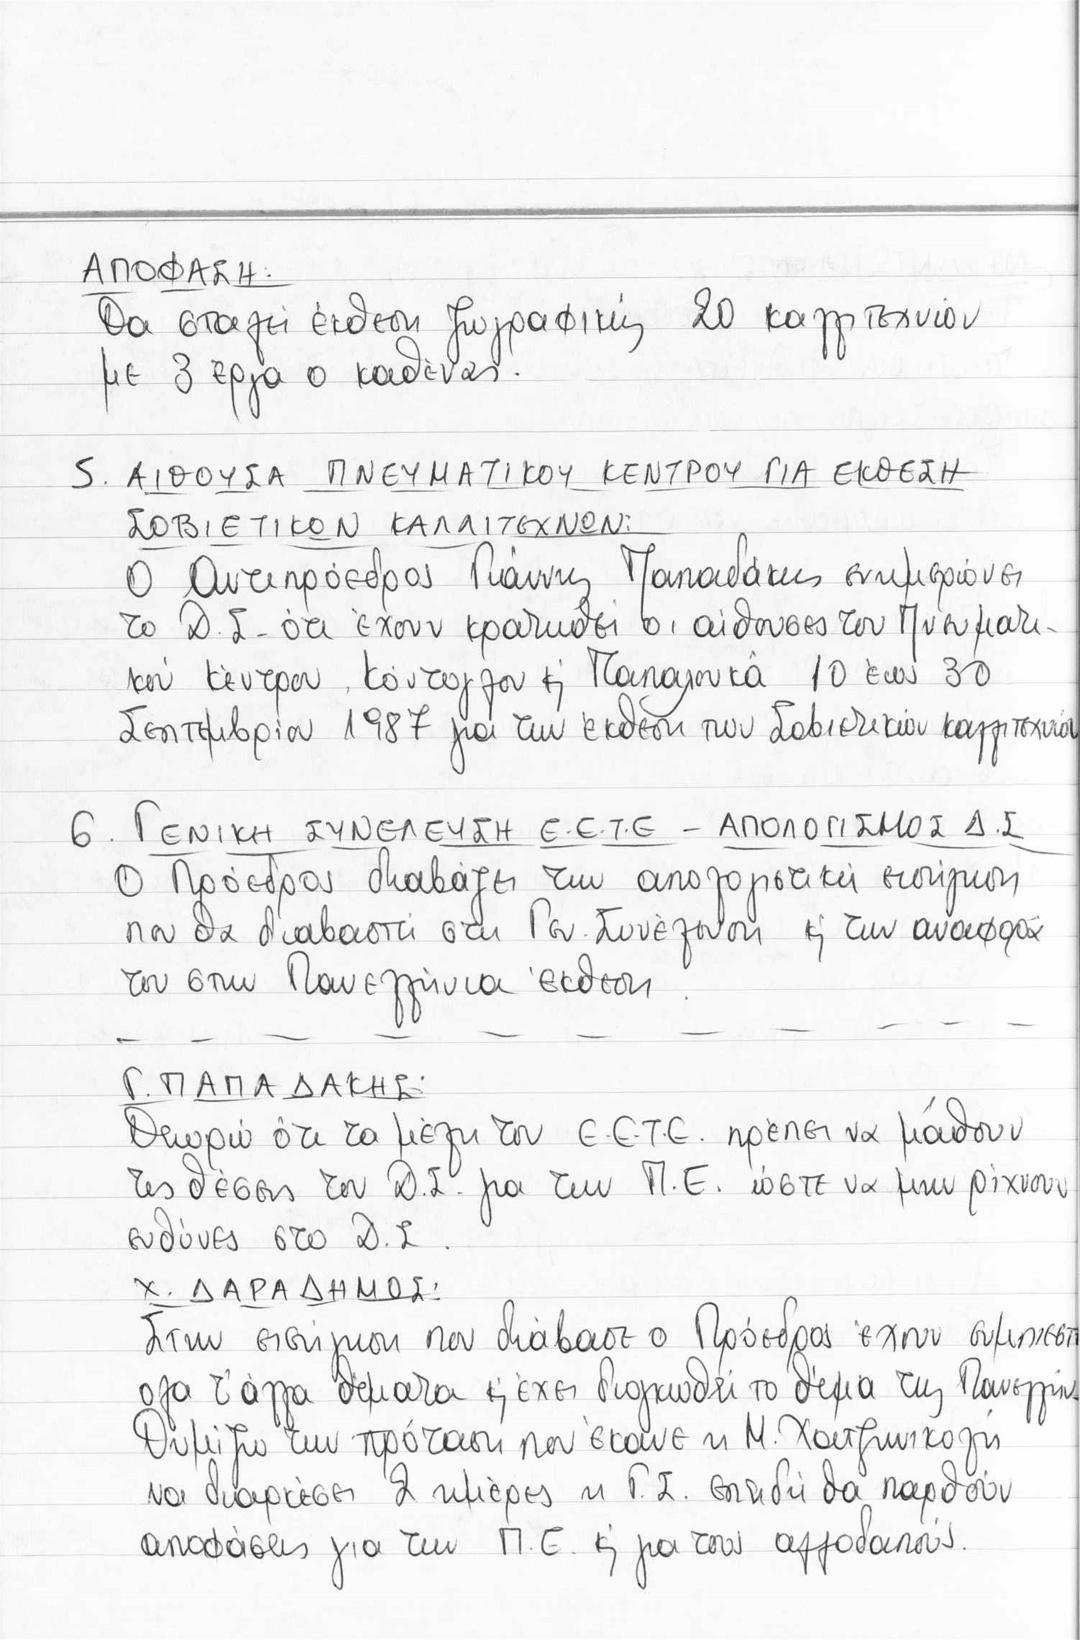 ΑΠΟΦΑΣΗ:
Θα σταλεί έκθεση ζωγραφικής 20 καλλιτεχνών
με 3 έργα ο καθένας.
5. ΑΙΘΟΥΣΑ ΠΝΕΥΜΑΤΙΚΟΥ ΚΕΝΤΡΟΥ ΓΙΑ ΕΚΘΕΣΗ
ΣΟΒΙΕΤΙΚΩΝ ΚΑΛΛΙΤΕΧΝΩΝ:
Ο Αντιπρόεδρος Γιάννης Παπαδάκης ενημερώνει
το Δ.Σ. ότι έχουν κρατηθεί οι αίθουσες του Πνευματι-
κού Κέντρου, Κόντογλου κ' Παπαλουκά 10 έως 30
Σεπτεμβρίου 1987 για την έκθεση των Σοβιετικών καλλιτεχνών
6. ΓΕΝΙΚΗ ΣΥΝΕΛΕΥΣΗ Ε.Ε.Τ.Ε - ΑΠΟΛΟΓΙΣΜΟΣ Δ.Σ
Ο Πρόεδρος διαβάζει την απολογιστική εισήγηση
που θα διαβαστεί στη Γεν. Συνέλευση κ' την αναφορά
του στην Πανελλήνια έκθεση.
Γ. ΠΑΠΑΔΑΚΗΣ:
Θεωρώ ότι τα μέλη του Ε.Ε.Τ.Ε. πρέπει να μάθουν
τις θέσεις του Δ.Σ. για την Π.Ε. ώστε να μην ρίχνουν
ευθύνες στο Δ.Σ.
Χ. ΔΑΡΑΔΗΜΟΣ:
Στην εισήγηση που διάβασε ο Πρόεδρος έχουν συμπιεστ
ολα τ'άλλα θέματα κ' έχει διογκωθεί το θέμα της Πανελλήν.
Θυμίζω την πρόταση που έκανε η Μ. Χατζηνικολή
να διαρκέσει 2 ημέρες η Γ.Σ. επειδή θα παρθούν
αποφάσεις για την Π.Ε. κ' για τους αλλοδαπούς.